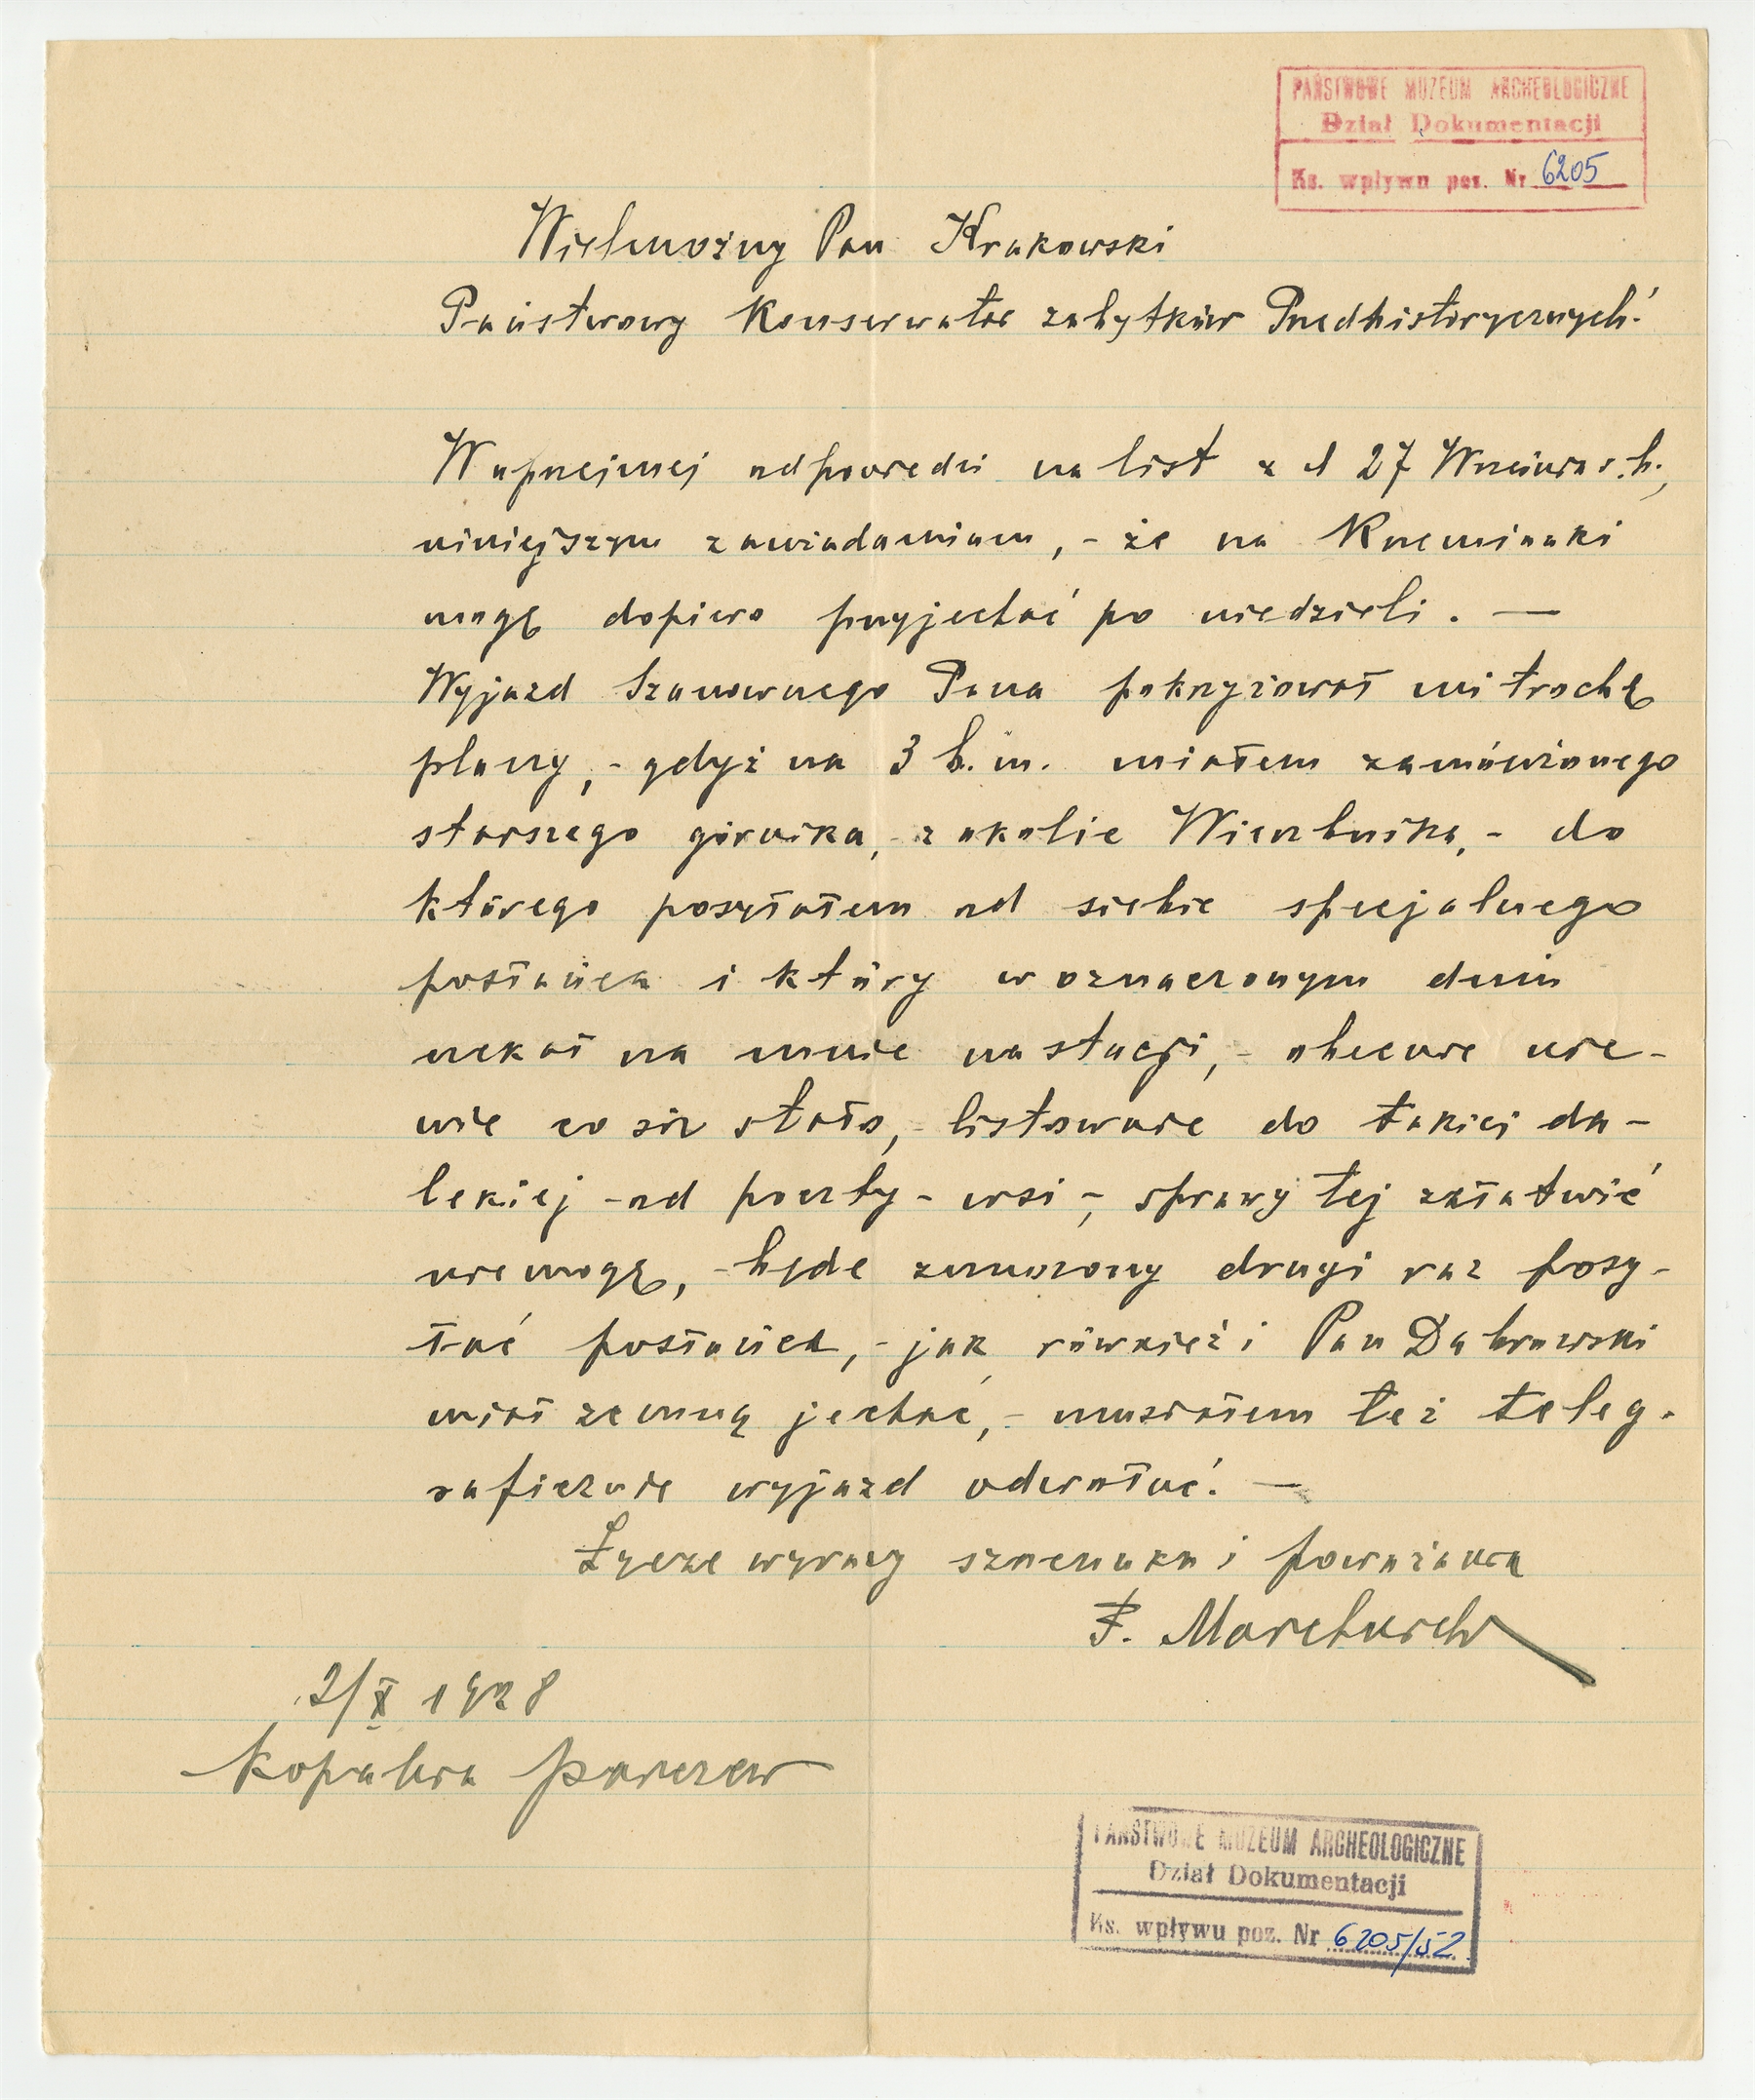 PAŃSTWOWE MUZEUM ARCHEOLOGICZNE
Dział Dokumentacji
Ks. wpływu poz. Nr 6205
Wielmożny Pan Krakowski
Państwowy Konserwator zabytków Przedhistorycznych!
W uprzejmej odpowiedzi na list z d 27 Września r.b.,
niniejszym zawiadamiam, - że na Krzemionki
mogę dopiero przyjechać po niedzieli. —
Wyjazd Szanownego Pana pokrzyżował mi trochę
plany, - gdyż na 3 b.m. miałem zamówionego
starszego górnika, - z okolic Wierzbnika, - do
którego posyłałem od siebie specjalnego
posłańca i który w oznaczonym dniu
czekał na mnie na stacji, - obecnie nie-
wie co się stało, - listownie do takiej da-
lekiej - od poczty - wsi -, sprawy tej załatwić
nie mogę, - będe zmuszony drugi raz posy-
łać posłańca, - jak również i Pan Dąbrowski
miał zemną jechać, - musiałem też teleg-
raficznie wyjazd odwołać. —
Łącze wyrazy szacunku i poważania
F.
2/X 1928
Kopalnia
PAŃSTWOWE MUZEUM ARCHEOLOGICZNE
Dział Dokumentacji
Ks. wpływu poz. Nr 6205/52